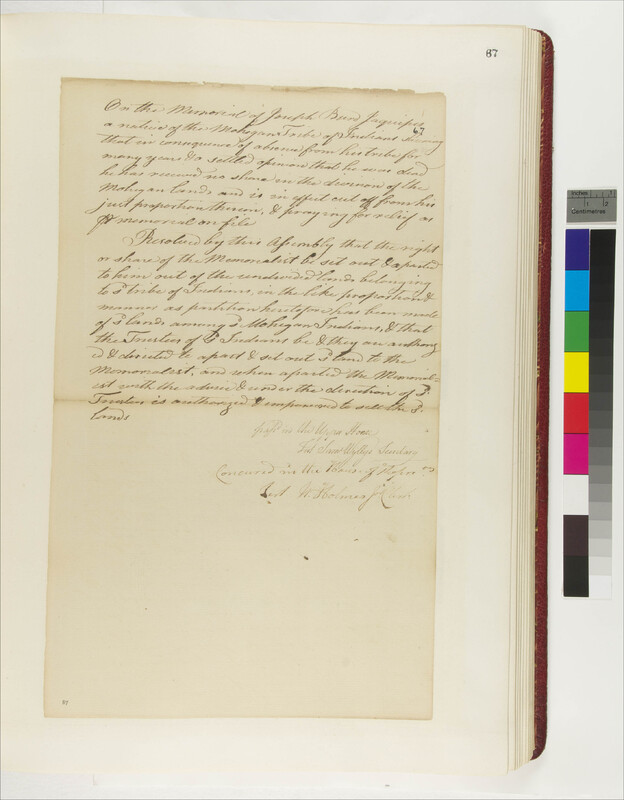 67
On the Memorial of Joseph Burn Jaquipis
67
a native of the Mohegan Tribe of Indians shewing
that in consequence of absence from his tribe for
many years & a settled opinion that he was dead
he has received no share in the division of the
Mohegan Lands and is in effect cut off from his
just proportion therein, & praying for relief as
pr memorial on file
Resolved by this Assembly that the right
or share of the Memorialist be set out & aparted
to him out of the undivided lands belonging
to sd tribe of Indians, in the like proportion &
manner as partition heretofore has been made
of sd lands among sd Mohegan Indians, & that
the Trustees of sd Indians be & they are authoriz
ed & directed to apart & set out sd land to the
Memorialist, and when aparted the Memorial=
ist with the advice & under the direction of sd
Trustees is authorized & impowered to sell the sd
lands
passd in the Upper House
Test Saml Wyllys Secretary
Concurred in the House of
Test W Holmes Jr Clerk
67
Inches
Centimetres